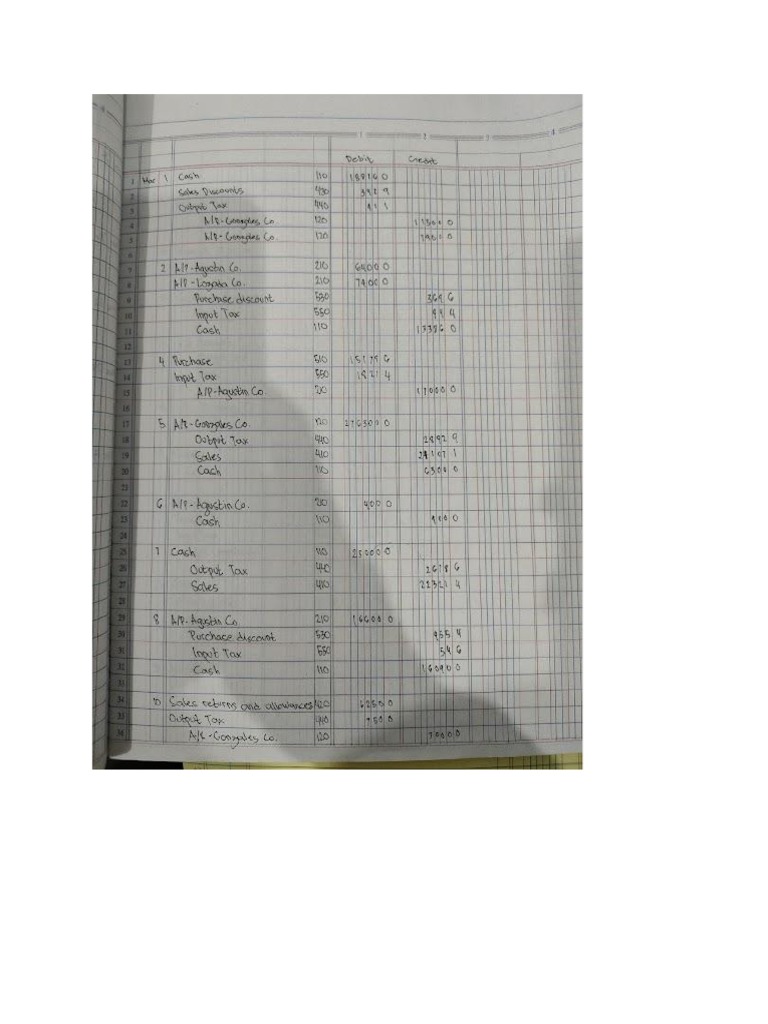 1 2 3 4
Debit Credit
1 Mar 1 Cash 110 188160
2 Sales Discounts 430
3 Output Tax 440 411
4 A/R-Gonzales Co. 120
5 A/R-Gonzales Co. 120
6
7 2 A/P-Agustin Co. 210 64000
8 A/P-Lozada Co. 210 74000
9 Purchase discount 530 3696
10 Input Tax 550
11 Cash 110 133860
12
13 4 Purchase 510 151786
14 Input Tax 550 18214
15 A/P-Agustin Co 170000
16
17 5 A/R-Gonzales Co. 120
18 Output Tax 440 28929
19 Sales 410 241071
20 Cash 110 6500
21
22 6 A/P-Agustin Co. 4000
23 Cash 110 4000
24
25 7 Cash 110 250000
26 Output Tax 440 26786
27 Sales 410 223214
28
29 8 A/P-Agustin Co. 210 166000
30 Purchase discount 530 4554
31 Input Tax 550 546
32 Cash 110 160900
33
34 Sales returns and allowances 420 62500
35 Output Tax 440 7500
36 A/R-Gonzales Co. 120 70000